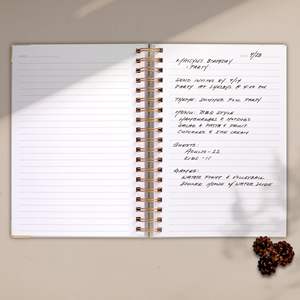 4/23
BIRTHDAY
PARTY
SEND INVITES BY 4/4
PARTY AT LYNDA'S @ 4:00 PM
THEME: SUMMER POOL PARTY
MENU: BBQ STYLE
HAMBURGERS & HOTDOGS
SALAD & PASTA & FRUIT
CUPCAKES & ICE CREAM
GUESTS:
ADULTS - 22
KIDS - 11
GAMES:
WATER FIGHT & VOLLEYBALL
BOUNCE HOUSE W/ WATER SLIDE